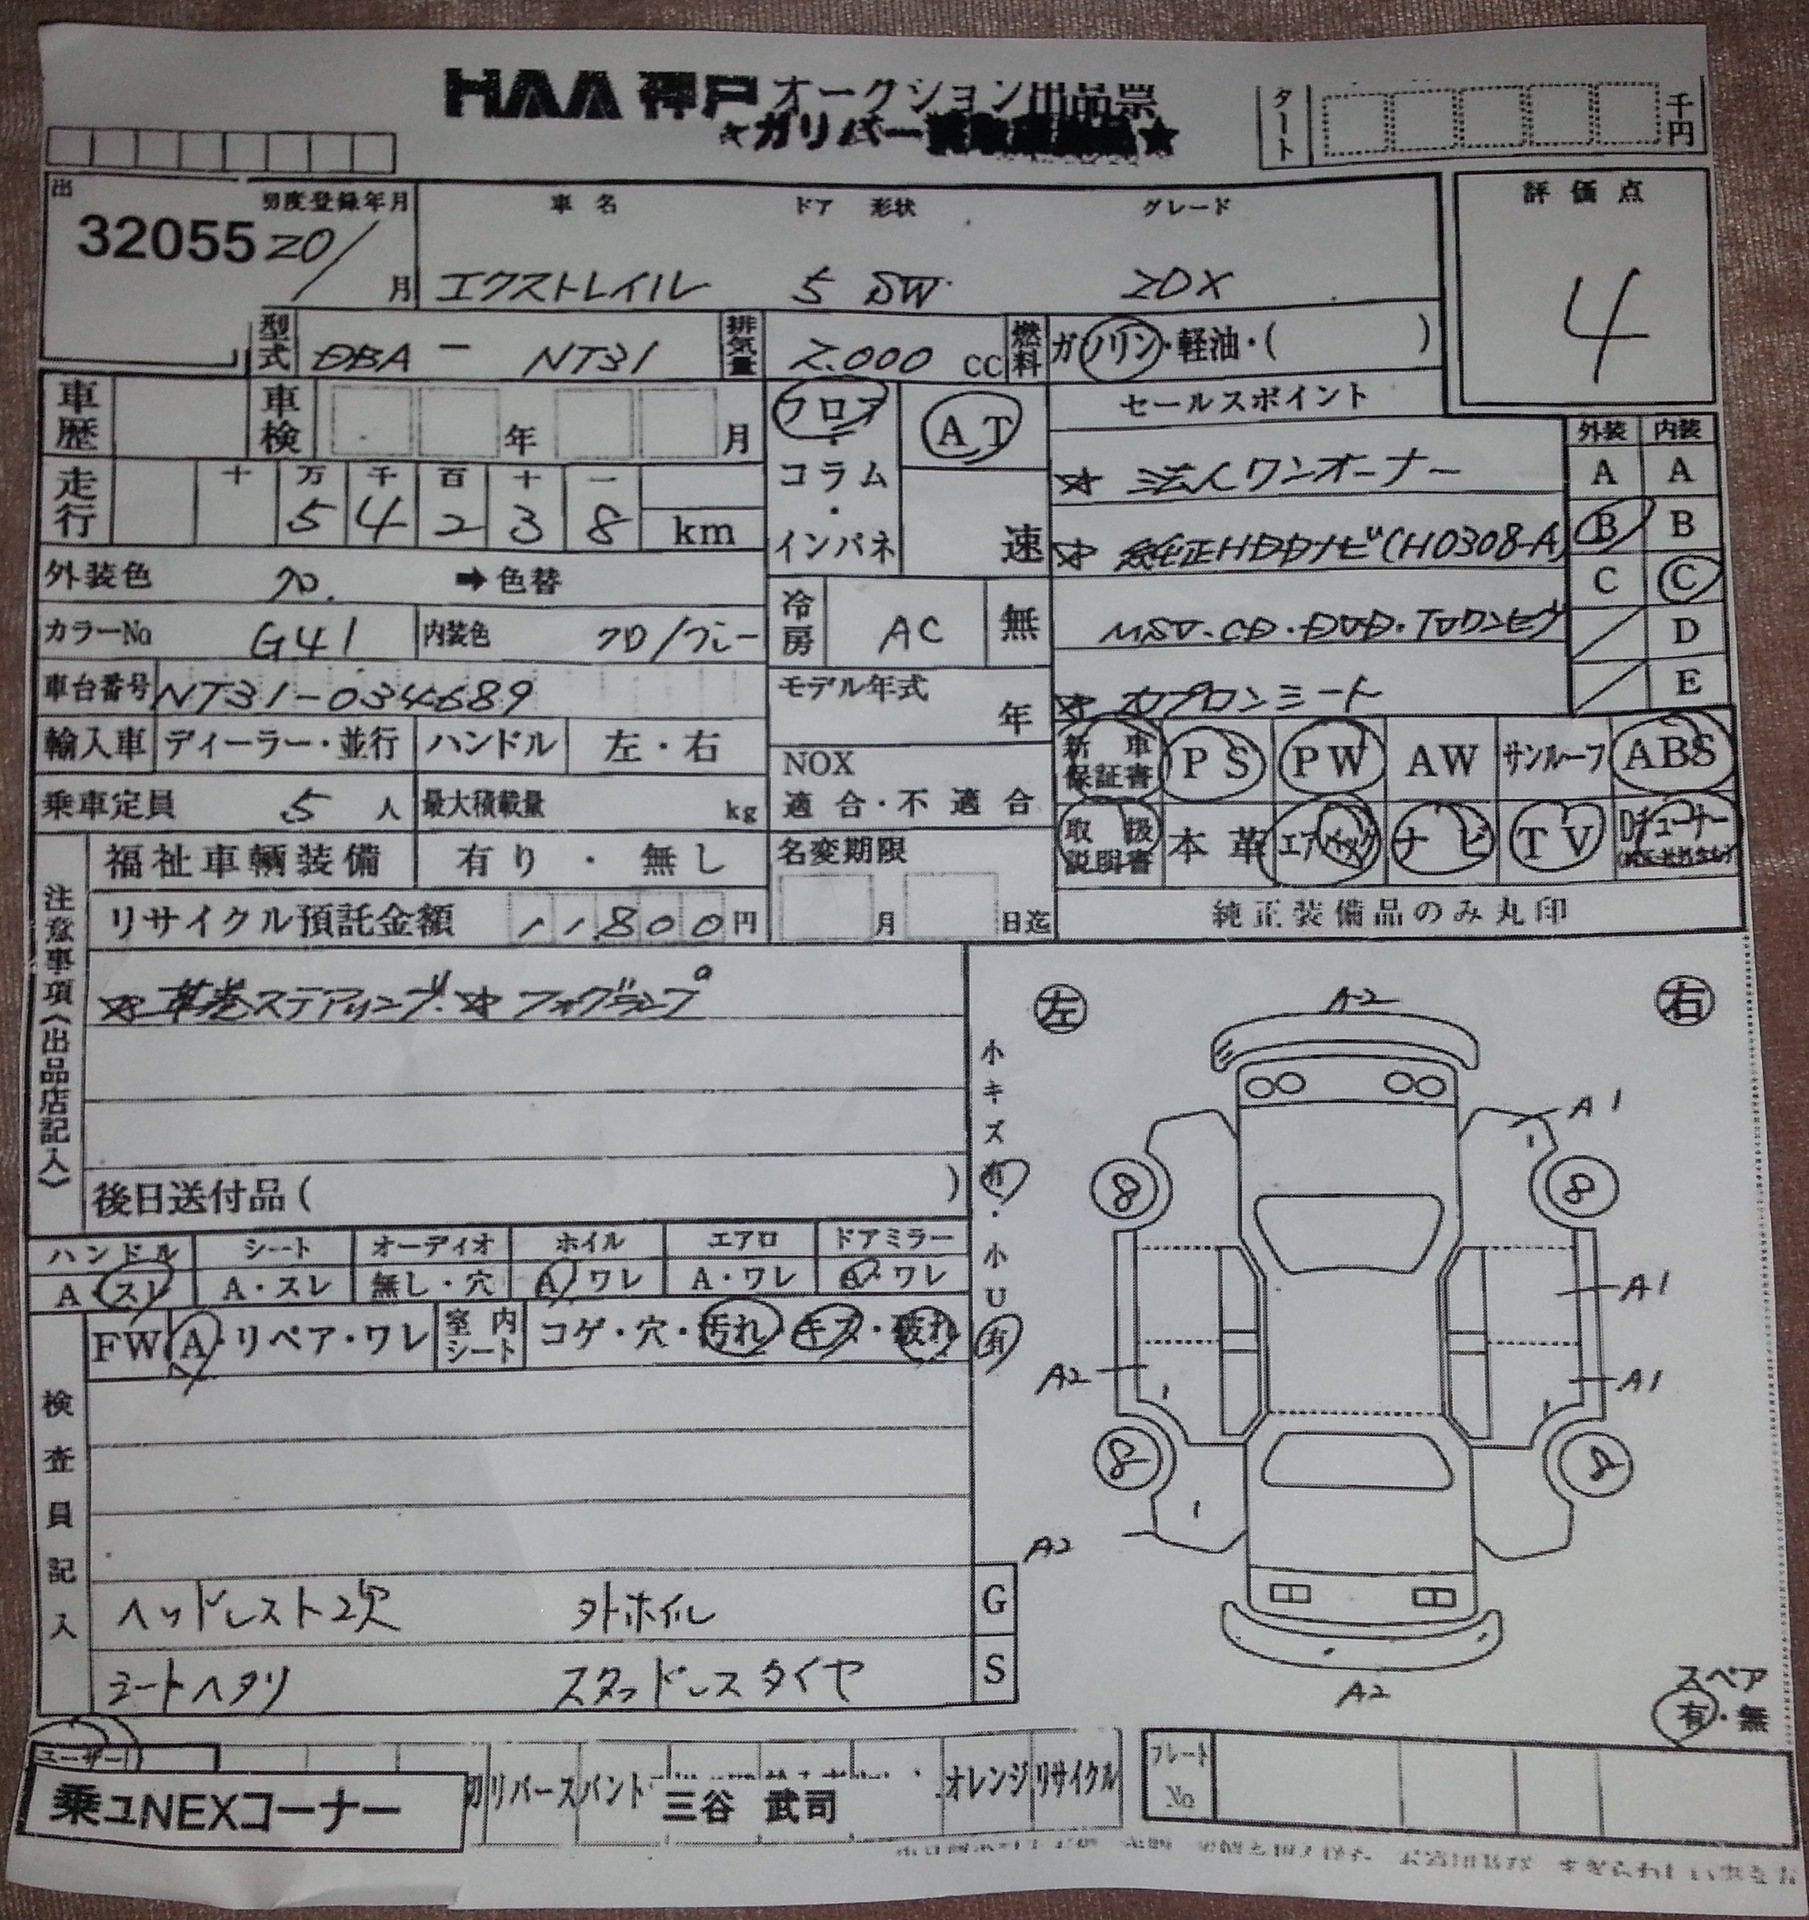 HAA 神戸 オークション出品票
★ガリバー
タート 千円
出 32055
初度登録年月 20/ 月
車名 ドア 形状 グレード
エクストレイル 5 SW 20X
評価点 4
型式 DBA - NT31 排気量 2.000 CC 燃料 ガソリン・軽油・( )
車歴 車検 年 月
フロア・コラム・インパネ AT 速
走行 十 万 千 百 十 一
5 4 2 3 8 km
外装色 クロ. ➡色替
カラーNo G41 内装色 クロ/グレー
冷房 AC 無
車台番号 NT31-034689
モデル年式 年
輸入車 ディーラー・並行 ハンドル 左・右
NOX 適合・不適合
乗車定員 5 人 最大積載量 kg
セールスポイント
☆ 法人ワンオーナー
☆ 純正HDDナビ(H0308-A)
MSV・CD・DVD・TVワンセグ
☆ カプロンシート
外装 内装
A A
B B
C C
D
E
新車保証書 PS PW AW サンルーフ ABS
取扱説明書 本革 エアバッグ ナビ TV Dチューナー
純正装備品のみ丸印
福祉車輌装備 有り・無し
名変期限 月 日迄
リサイクル預託金額 11800円
注意事項《出品店記入》
☆ 革巻ステアリング・☆ フォグランプ
後日送付品( )
小キズ有・小U有
ハンドル シート オーディオ ホイル エアロ ドアミラー
A・スレ A・スレ 無し・穴 A・ワレ A・ワレ A・ワレ
FW A・リペア・ワレ 室内シート コゲ・穴・汚れ・キズ・破れ
検査員記入
ヘッドレスト2欠 外ホイル
シートヘタリ スタッドレスタイヤ
G
S
左 右
A2
A1
8 8
A1
A2 A1
8 8
A2
A2
スペア
有・無
ユーザー
乗ユNEXコーナー
切 リバース バント オレンジ リサイクル
三谷 武司
プレートNo